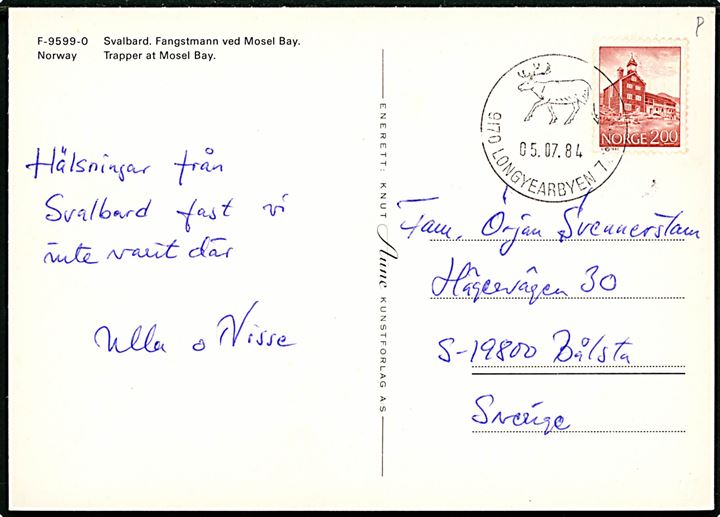 F-9599-0 Svalbard. Fangstmann ved Mosel Bay.
Norway Trapper at Mosel Bay.
P
NORGE 200
9170 LONGYEARBYEN
05.07.84
ENERETT: KNUT Aune KUNSTFORLAG AS
Hälsningar från
Svalbard fast vi
inte varit där
Ulla o Nisse
Fam. Örjan Svennerstam
Hägervägen 30
S-19800 Bålsta
Sverige